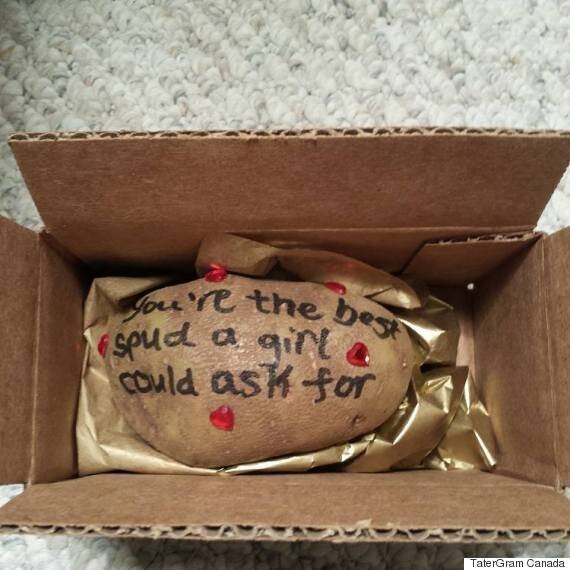 You're the best
spud a girl
could ask for
TaterGram Canada